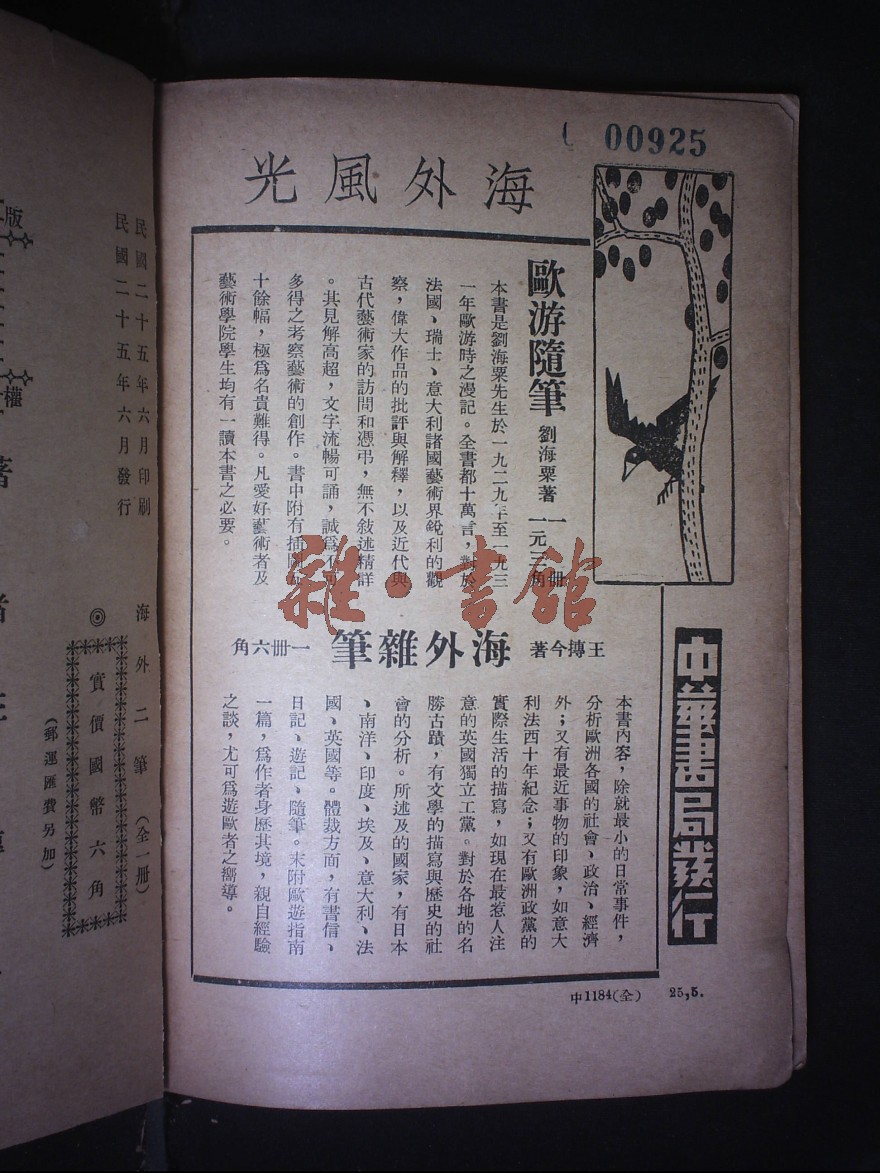 00925
海外風光
歐游隨筆
劉海粟著
一冊
一元三角
本書是劉海粟先生於一九二九年至一九三
一年歐游時之漫記。全書都十萬言，對於
法國、瑞士、意大利諸國藝術界銳利的觀
察，偉大作品的批評與解釋，以及近代與
古代藝術家的訪問和憑弔，無不敍述精詳
。其見解高超，文字流暢可誦，誠爲不可
多得之考察藝術的創作。書中附有插圖
十餘幅，極爲名貴難得。凡愛好藝術者及
藝術學院學生均有一讀本書之必要。
雜·書館
王摶今著
海外雜筆
一冊六角
本書內容，除就最小的日常事件，
分析歐洲各國的社會、政治、經濟
外；又有最近事物的印象，如意大
利法西十年紀念；又有歐洲政黨的
實際生活的描寫，如現在最惹人注
意的英國獨立工黨。對於各地的名
勝古蹟，有文學的描寫與歷史的社
會的分析。所述及的國家，有日本
、南洋、印度、埃及、意大利、法
國、英國等。體裁方面，有書信、
日記、遊記、隨筆。末附歐遊指南
一篇，爲作者身歷其境，親自經驗
之談，尤可爲遊歐者之嚮導。
中華書局發行
中1184(全) 25,5.
民國二十五年六月印刷
民國二十五年六月發行
海外二筆（全一冊）
◎實價國幣六角
（郵運匯費另加）
版
權